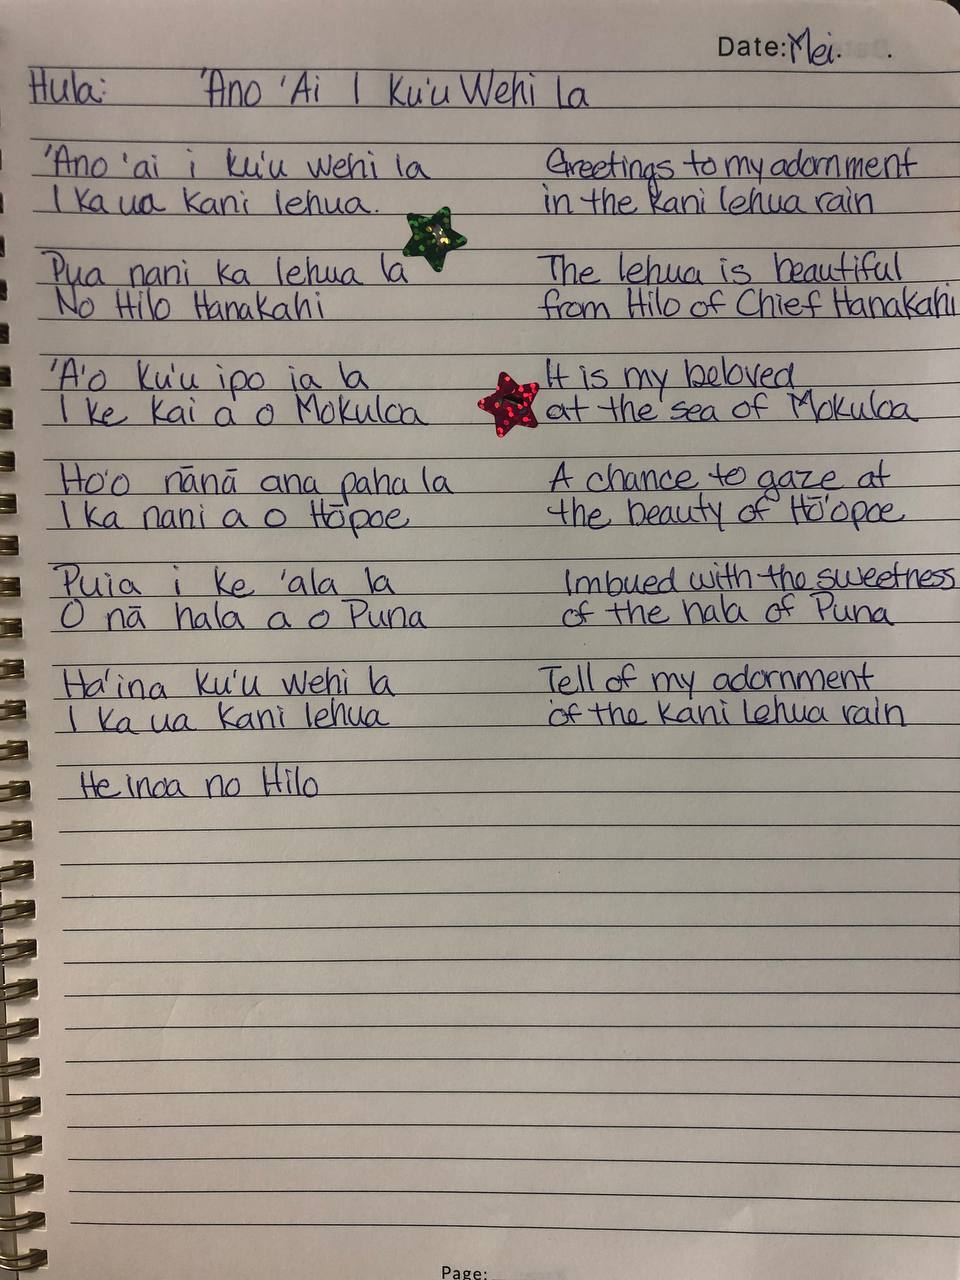 Date: Mei.
Hula: 'Ano 'Ai I Ku'u Wehi La
'Ano 'ai i ku'u wehi la Greetings to my adornment
I ka ua kani lehua. in the kani lehua rain
Pua nani ka lehua la The lehua is beautiful
No Hilo Hanakahi from Hilo of Chief Hanakahi
'A'o ku'u ipo ia la It is my beloved
I ke kai a o Mokuloa at the sea of Mokuloa
Ho'o nānā ana paha la A chance to gaze at
I ka nani a o Hōpoe the beauty of Hō'opoe
Puia i ke 'ala la Imbued with the sweetness
O nā hala a o Puna of the hala of Puna
Ha'ina ku'u wehi la Tell of my adornment
I ka ua kani lehua of the kani Lehua rain
He inoa no Hilo
Page: